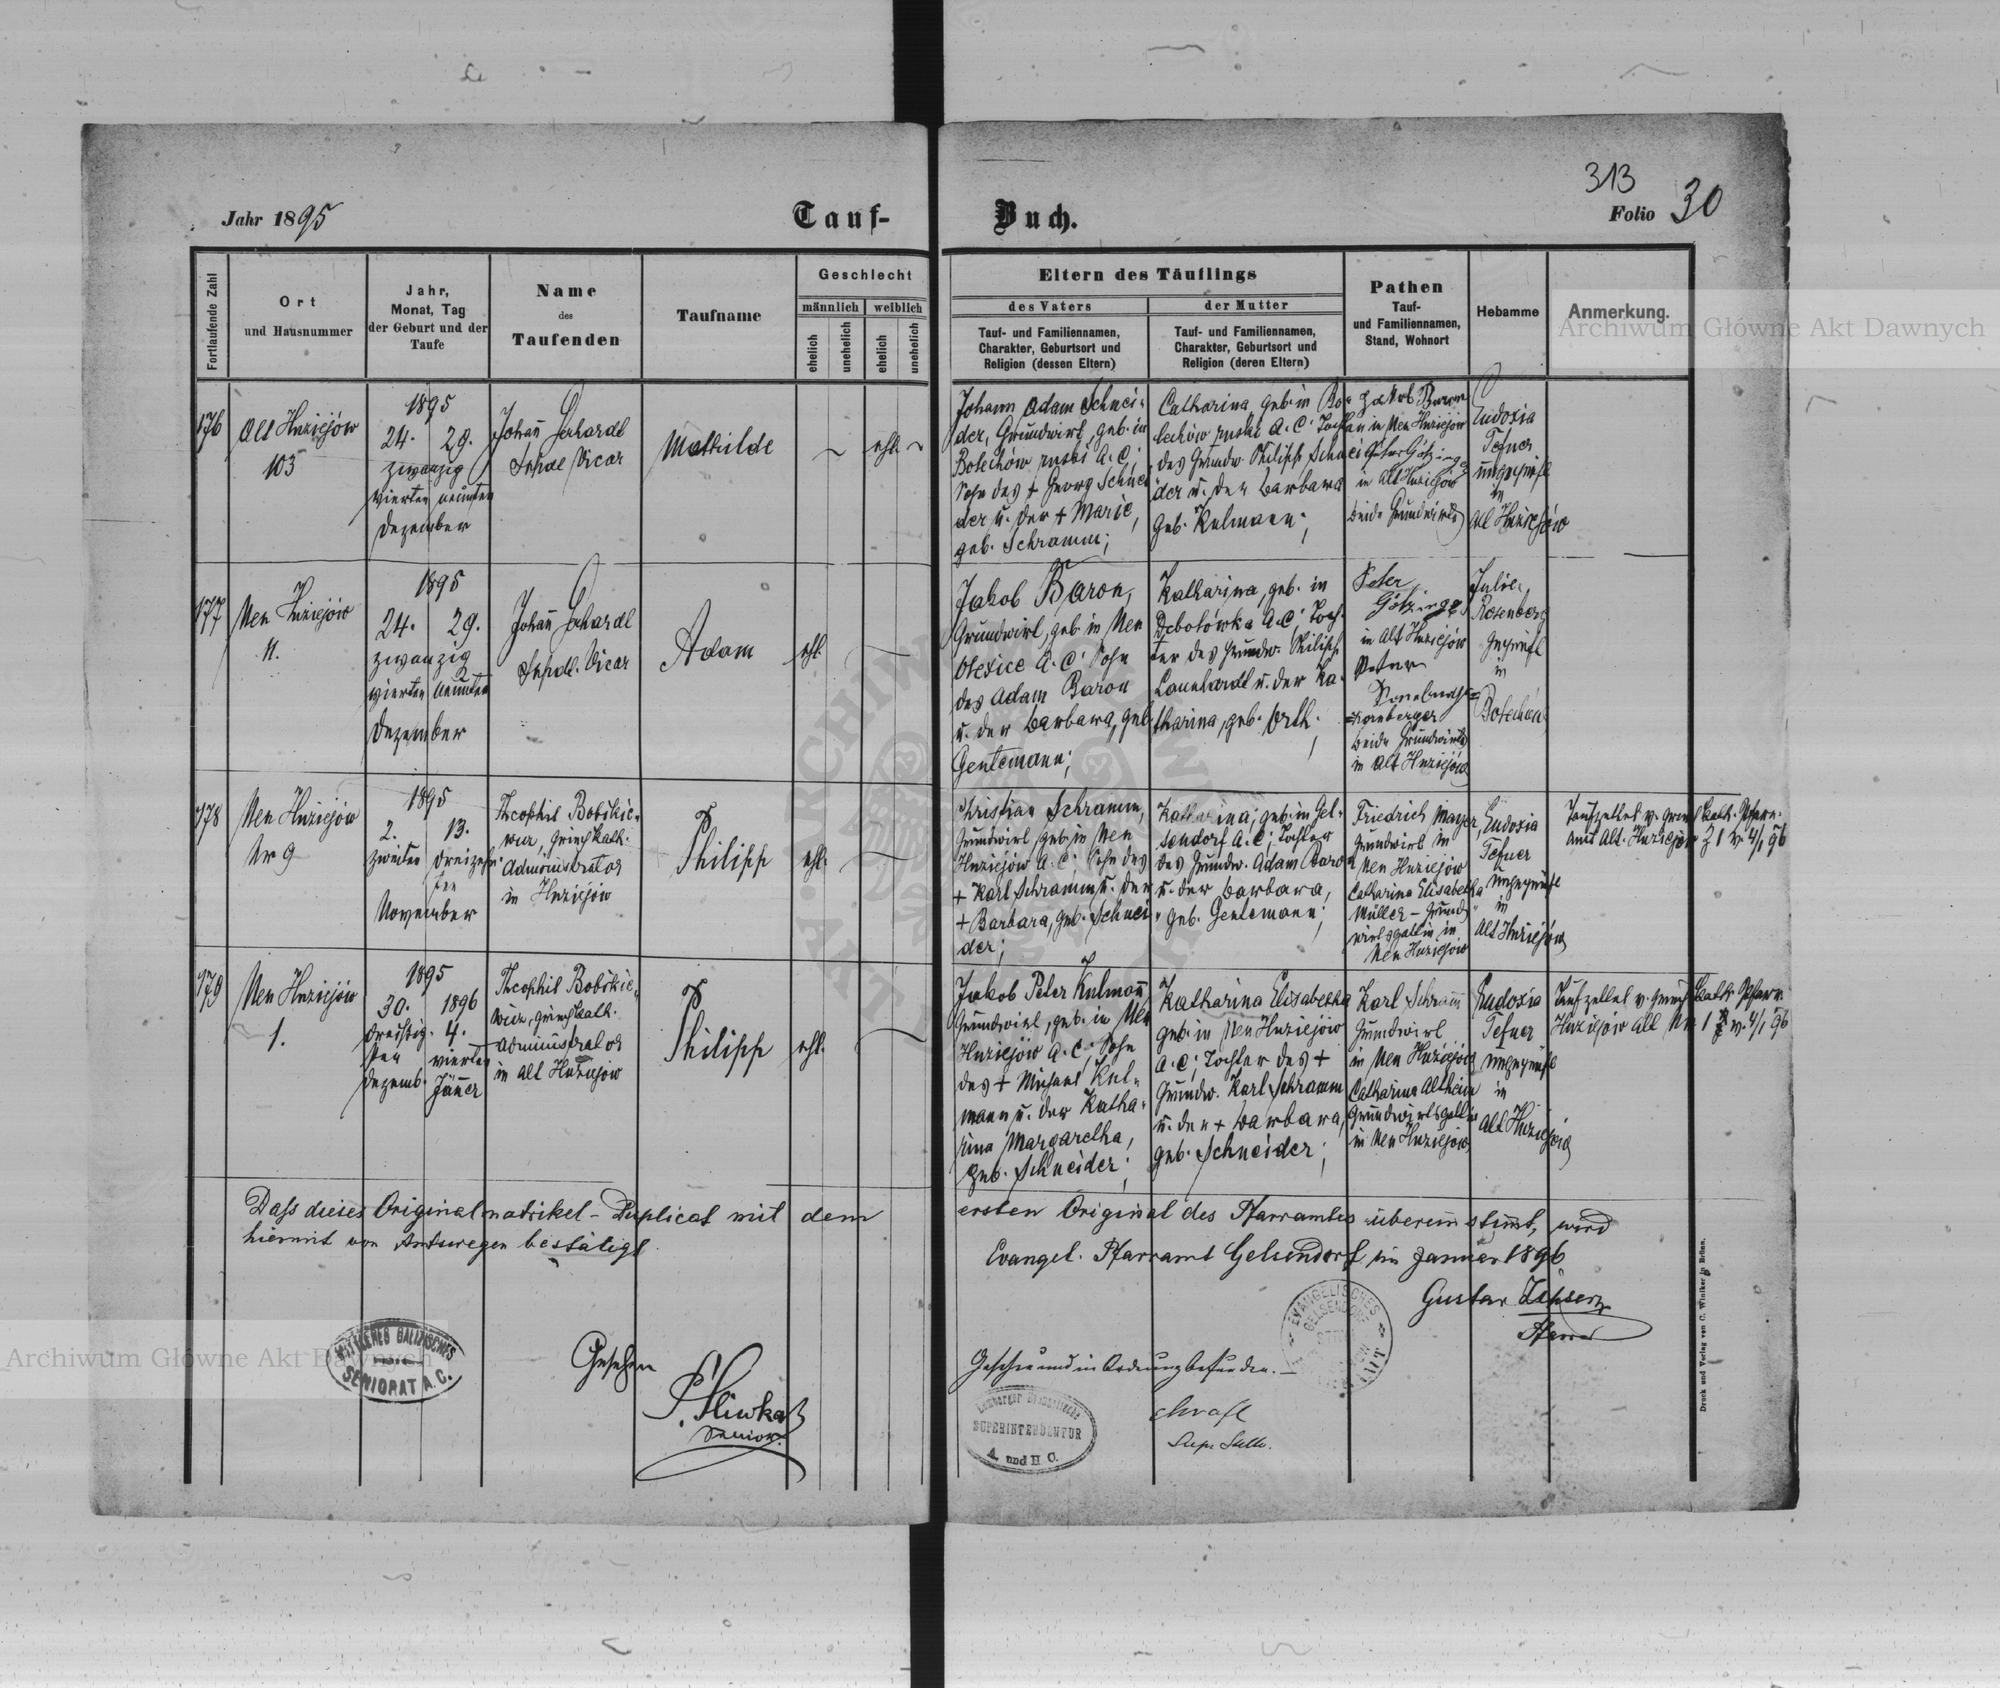 313
Jahr 1895
Tauf-
Buch.
Folio 30
Fortlaufende Zahl
Ort
und Hausnummer
Jahr,
Monat, Tag
der Geburt und der
Taufe
Name
des
Taufenden
Taufname
Geschlecht
männlich
weiblich
ehelich
unehelich
ehelich
unehelich
Eltern des Täuflings
des Vaters
Tauf- und Familiennamen,
Charakter, Geburtsort und
Religion (dessen Eltern)
der Mutter
Tauf- und Familiennamen,
Charakter, Geburtsort und
Religion (deren Eltern)
Pathen
Tauf-
und Familiennamen,
Stand, Wohnort
Hebamme
Anmerkung.
176
Alt Hnziejów
103
1895
24. 29.
zwanzig
vierten neunten
Dezember
Johann
Vicar
Mathilde
ehl.
Johann Adam Schnei-
der, Grundwirt, geb. in
Bolechów ruski A.C;
Sohn des + Georg Schnei
der u. der + Marie,
geb. Schramm;
Catharina, geb. in Bo-
lechów ruski A.C; Tochter
des Grundw. Philipp Schnei
der u. der Barbara
geb. Kulmann;
Jakob Baron
in Neu Hnziejów
Peter Götzinger
in Alt Hnziejów
beide Grundwirte
Eudoxia
Tefner
ungeprüft
in
Alt Hnziejów
177
Neu Hnziejów
11.
1895
24. 29.
zwanzig
vierten neunten
Dezember
Johann
Vicar
Adam
ehl.
Jakob Baron,
Grundwirt, geb. in Neu
Olexice A.C; Sohn
des Adam Baron
u. der Barbara, geb.
Gentemann;
Katharina, geb. in
Debolówka A.C; Toch-
ter des Grundw. Philipp
Leonhardt u. der Ka-
tharina, geb. Orth;
Peter
Götzinger
in Alt Hnziejów
beide Grundwirte
in Alt Hnziejów
Julie
Rosenberg
geprüft
in
Bolechów
178
Neu Hnziejów
Nr 9
1895
2. 13.
zweiten dreizehn-
ten
November
Theophil Bobikie-
wicz, griech. kath.
Administrator
in Hnziejów
Philipp
ehl.
Christian Schramm,
Grundwirt, geb. in Neu
Hnziejów A.C; Sohn des
+ Karl Schramm u. der
+ Barbara, geb. Schnei
der;
Katharina, geb. in Gel-
sendorf A.C; Tochter
des Grundw. Adam Baron
u. der Barbara,
geb. Gentemann;
Friedrich Mayer,
Grundwirt in
Neu Hnziejów
Catharina Elisabetha
Müller - Grund-
wirtsgattin in
Neu Hnziejów
Eudoxia
Tefner
ungeprüft
in
Alt Hnziejów
Taufzettel v. griech. kath. Pfarr-
amt Alt-Hnziejów Z 1 v. 4/1 96
179
Neu Hnziejów
1.
1895
30. 1896
dreißig- 4.
sten vierten
Dezemb. Jänner
Theophil Bobikie-
wicz, griech. kath.
Administrator
in Alt Hnziejów
Philipp
ehl.
Jakob Peter Kulmann
Grundwirt, geb. in Neu
Hnziejów A.C; Sohn
des + Michael Kul-
mann u. der Katha-
rina Margaretha,
geb. Schneider;
Katharina Elisabetha
geb. in Neu Hnziejów
A.C; Tochter des +
Grundw. Karl Schramm
u. der + Barbara,
geb. Schneider;
Karl Schramm
Grundwirt
in Neu Hnziejów
Catharina Altheim
Grundwirtsgattin
in Neu Hnziejów
Eudoxia
Tefner
ungeprüft
in
Alt Hnziejów
Taufzettel v. griech. kath. Pfarr.
Hnziejów Alt Nr 1 v. 4/1 96
Dass dieses Originalmatrikel-Duplicat mit dem ersten Original des Pfarramtes übereinstimmt, wird
hiermit von Amtswegen bestätigt.
Evangel. Pfarramt Gelsendorf im Januar 1896
Gustav
Pfarrer
EVANGELISCHES
GELSENDORF
MITTLERES GALIZISCHES
SENIORAT A. C.
Gesehen
Senior.
Gesehen und in Ordnung befunden.
Lemberger
SUPERINTENDENTUR
A. und H. C.
Druck und Verlag von C. Winiker in Brünn.
Archiwum Główne Akt Dawnych
Archiwum Główne Akt Dawnych